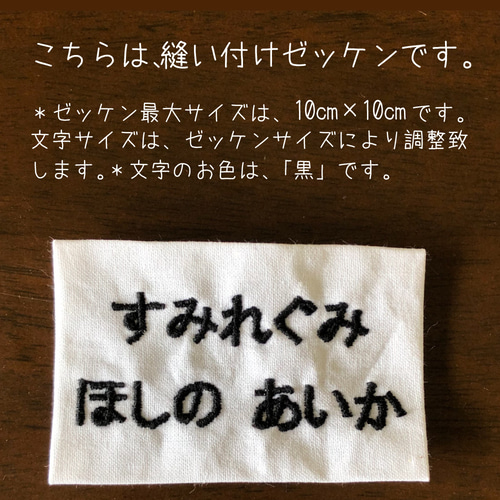 こちらは、縫い付けゼッケンです。
＊ゼッケン最大サイズは、10cm×10cmです。
文字サイズは、ゼッケンサイズにより調整致
します。＊文字のお色は、「黒」です。
すみれぐみ
ほしの あいか